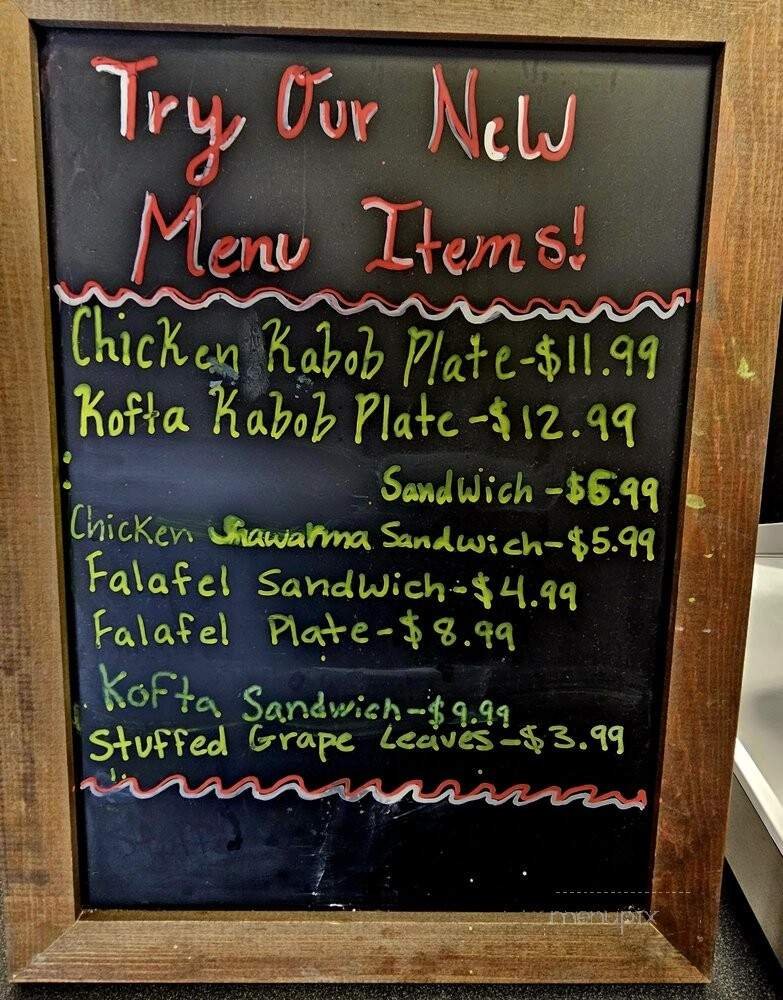 Try Our New
Menu Items!
Chicken Kabob Plate-$11.99
Kofta Kabob Plate-$12.99
Sandwich-$6.99
Chicken Shawarma Sandwich-$5.99
Falafel Sandwich-$4.99
Falafel Plate-$8.99
Kofta Sandwich-$9.99
Stuffed Grape Leaves-$3.99
menupix